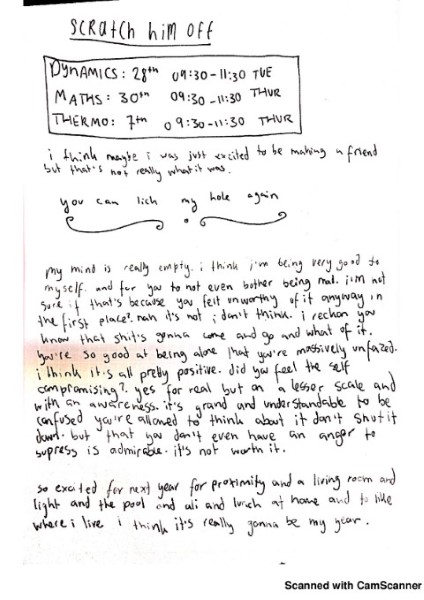 SCRatch him off
DYNAMICS: 28th 09:30-11:30 TUE
MATHS: 30th 09:30-11:30 THUR
THERMO: 7th 09:30-11:30 THUR
i think maybe i was just excited to be making a friend
but that's not really what it was.
you can lich my hole again
my mind is really empty. i think i'm being very good to
myself. and for you to not even bother being mad. i'm not
sure if that's because you felt unworthy of it anyway in
the first place?. nah it's not i don't think. i rechon you
know that shit's gonna come and go and what of it.
you're so good at being alone that you're massively unfazed.
i think it's all pretty positive. did you feel the self
compromising?. yes for real but on a lesser scale and
with an awareness. it's grand and understandable to be
confused you're allowed to think about it don't shut it
down. but that you don't even have an anger to
supress is admirable. it's not worth it.
so excited for next year for proximity and a living room and
light and the pool and ali and lunch at home and to like
where i live i think it's really gonna be my year.
Scanned with CamScanner